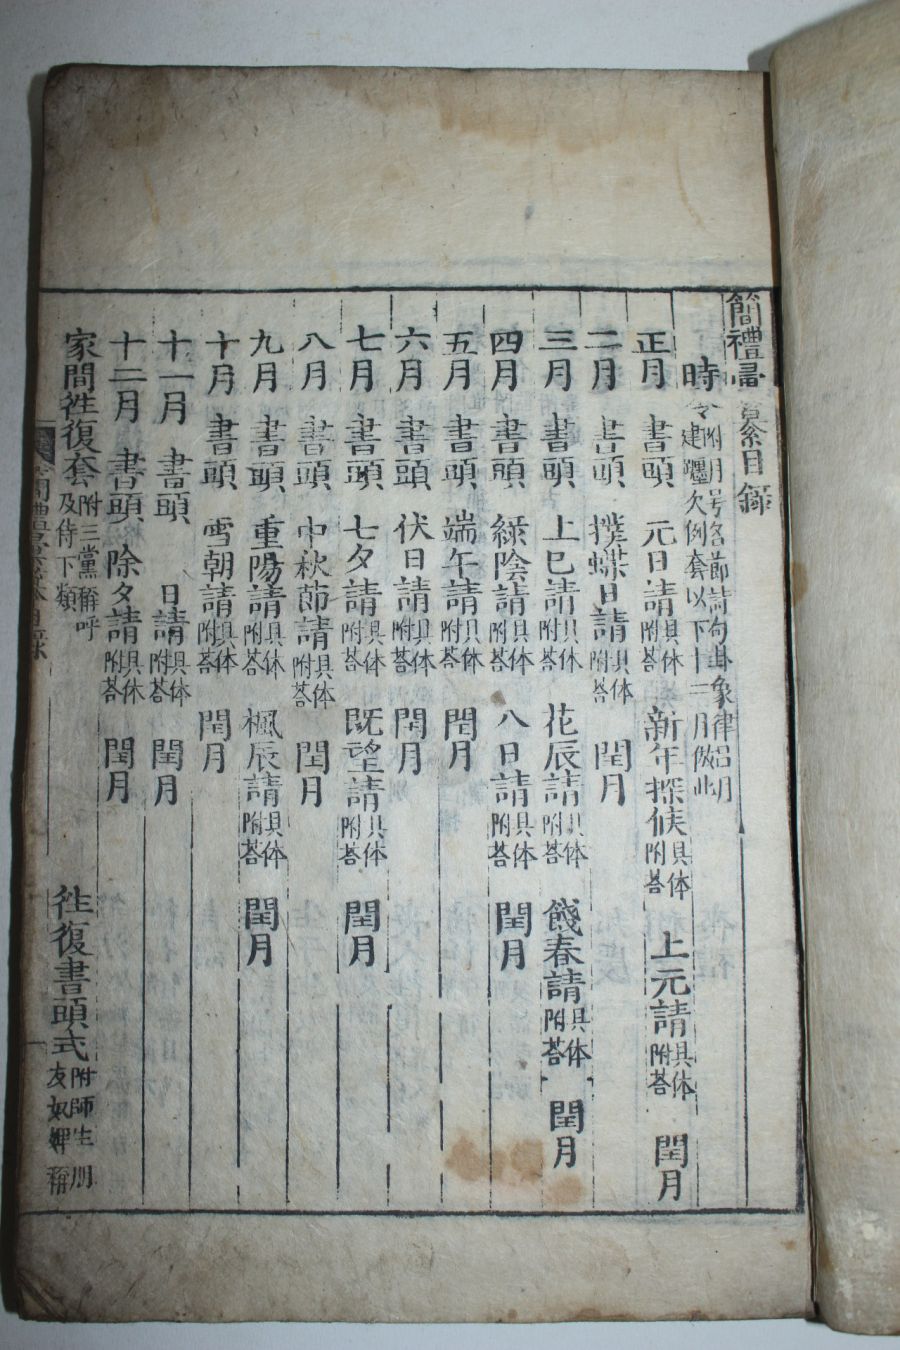 簡禮彙纂目錄
時令 附月号名節詩句卦象律呂月
建躔欠例套以下十二月倣此
正月 書頭 元日請 具体附答 新年探候 具体附答 上元請 具体附答 閏月
二月 書頭 撲蝶日請 具体附答 閏月
三月 書頭 上巳請 具体附答 花辰請 具体附答 餞春請 具体附答 閏月
四月 書頭 綠陰請 具体附答 八日請 具体附答 閏月
五月 書頭 端午請 具体附答 閏月
六月 書頭 伏日請 具体附答 閏月
七月 書頭 七夕請 具体附答 既望請 具体附答 閏月
八月 書頭 中秋節請 具体附答 閏月
九月 書頭 重陽請 具体附答 楓辰請 具体附答 閏月
十月 書頭 雪朝請 具体附答 閏月
十一月 書頭 日請 具体附答 閏月
十二月 書頭 除夕請 具体附答 閏月
家間徃復套 附三黨稱呼及侍下類 徃復書頭式 附師生朋友奴婢稱